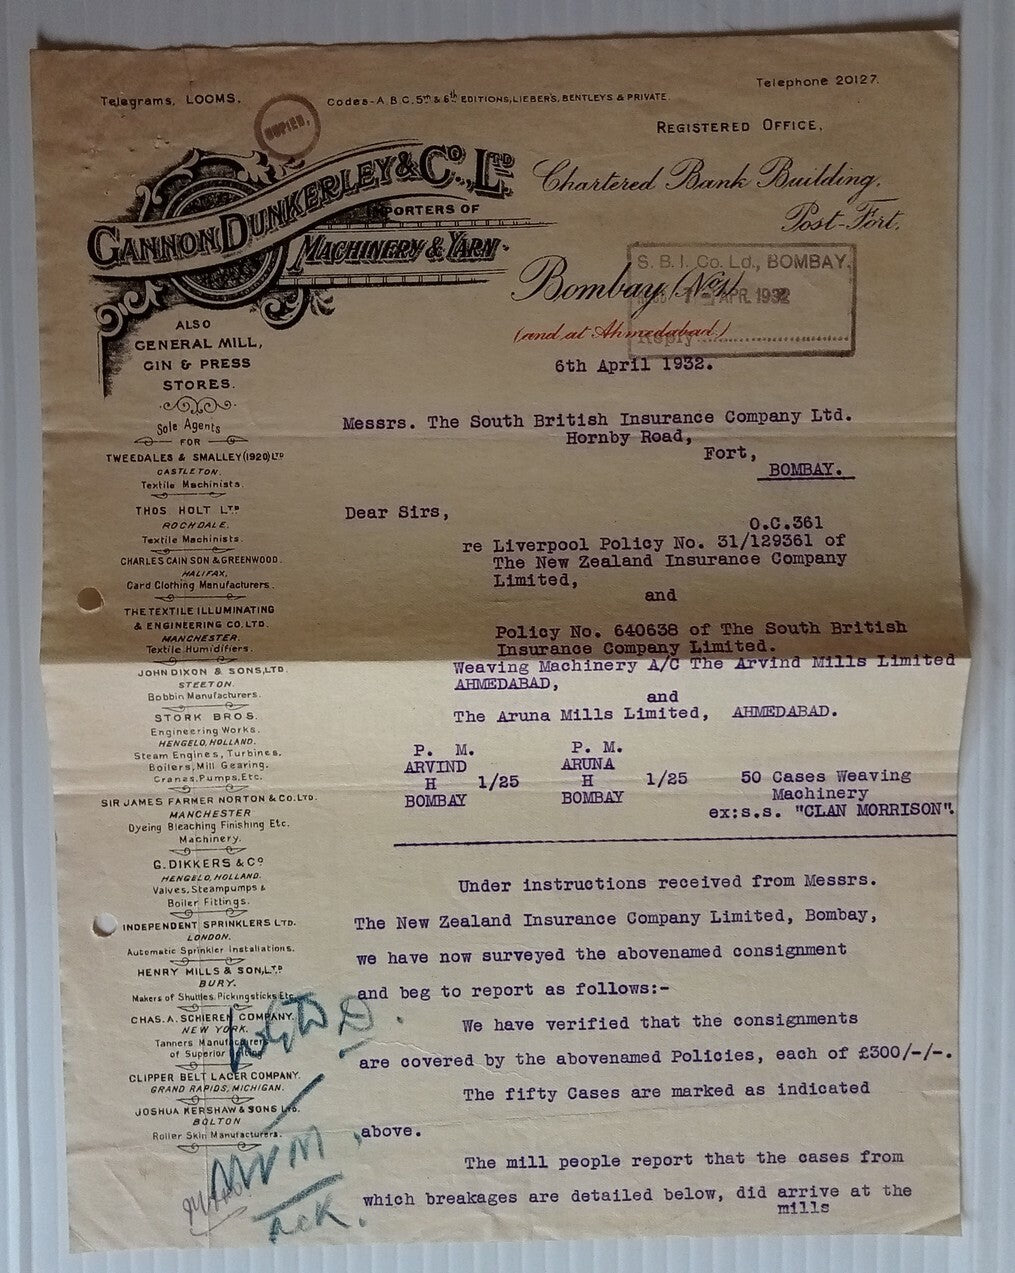 Telegrams, LOOMS.
Codes-A.B.C. 5th & 6th EDITIONS, LIEBER'S, BENTLEYS & PRIVATE.
Telephone 20127.
COPIED.
REGISTERED OFFICE,
GANNON DUNKERLEY & CO., LTD
IMPORTERS OF
MACHINERY & YARN.
Chartered Bank Building,
Post-Fort,
Bombay (No 1)
(and at Ahmedabad)
S. B. I. Co. Ld., BOMBAY.
7 - APR. 1932
Reply
ALSO
GENERAL MILL,
GIN & PRESS
STORES.
Sole Agents
FOR
TWEEDALES & SMALLEY (1920) LTD
CASTLETON.
Textile Machinists.
THOS HOLT LTD
ROCHDALE.
Textile Machinists.
CHARLES CAIN SON & GREENWOOD.
HALIFAX,
Card Clothing Manufacturers.
THE TEXTILE ILLUMINATING
& ENGINEERING CO. LTD.
MANCHESTER.
Textile Humidifiers.
JOHN DIXON & SONS, LTD
STEETON.
Bobbin Manufacturers.
STORK BROS.
Engineering Works.
HENGELO, HOLLAND.
Steam Engines, Turbines,
Boilers, Mill Gearing.
Cranes, Pumps, Etc.
SIR JAMES FARMER NORTON & CO. LTD.
MANCHESTER
Dyeing Bleaching Finishing Etc.
Machinery.
G. DIKKERS & CO
HENGELO, HOLLAND.
Valves, Steampumps &
Boiler Fittings.
INDEPENDENT SPRINKLERS LTD.
LONDON.
Automatic Sprinkler Installations.
HENRY MILLS & SON, LTD
BURY.
Makers of Shuttles, Pickingsticks Etc.
CHAS. A. SCHIEREN COMPANY.
NEW YORK.
Tanners Manufacturers
of Superior Belting
CLIPPER BELT LACER COMPANY.
GRAND RAPIDS, MICHIGAN.
JOSHUA KERSHAW & SONS LTD.
BOLTON
Roller Skin Manufacturers.
6th April 1932.
Messrs. The South British Insurance Company Ltd.
Hornby Road,
Fort,
BOMBAY.
Dear Sirs,
O.C.361
re Liverpool Policy No. 31/129361 of
The New Zealand Insurance Company
Limited,
and
Policy No. 640638 of The South British
Insurance Company Limited.
Weaving Machinery A/C The Arvind Mills Limited
AHMEDABAD,
and
The Aruna Mills Limited, AHMEDABAD.
P. M. P. M.
ARVIND ARUNA
H 1/25 H 1/25 50 Cases Weaving
BOMBAY BOMBAY Machinery
ex:s.s. "CLAN MORRISON".
Under instructions received from Messrs.
The New Zealand Insurance Company Limited, Bombay,
we have now surveyed the abovenamed consignment
and beg to report as follows:-
We have verified that the consignments
are covered by the abovenamed Policies, each of £300/-/-.
The fifty Cases are marked as indicated
above.
The mill people report that the cases from
which breakages are detailed below, did arrive at the
mills
ack.